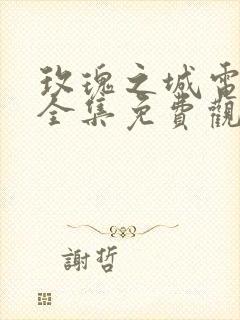 玫瑰之城電
全集免費觀
謝哲